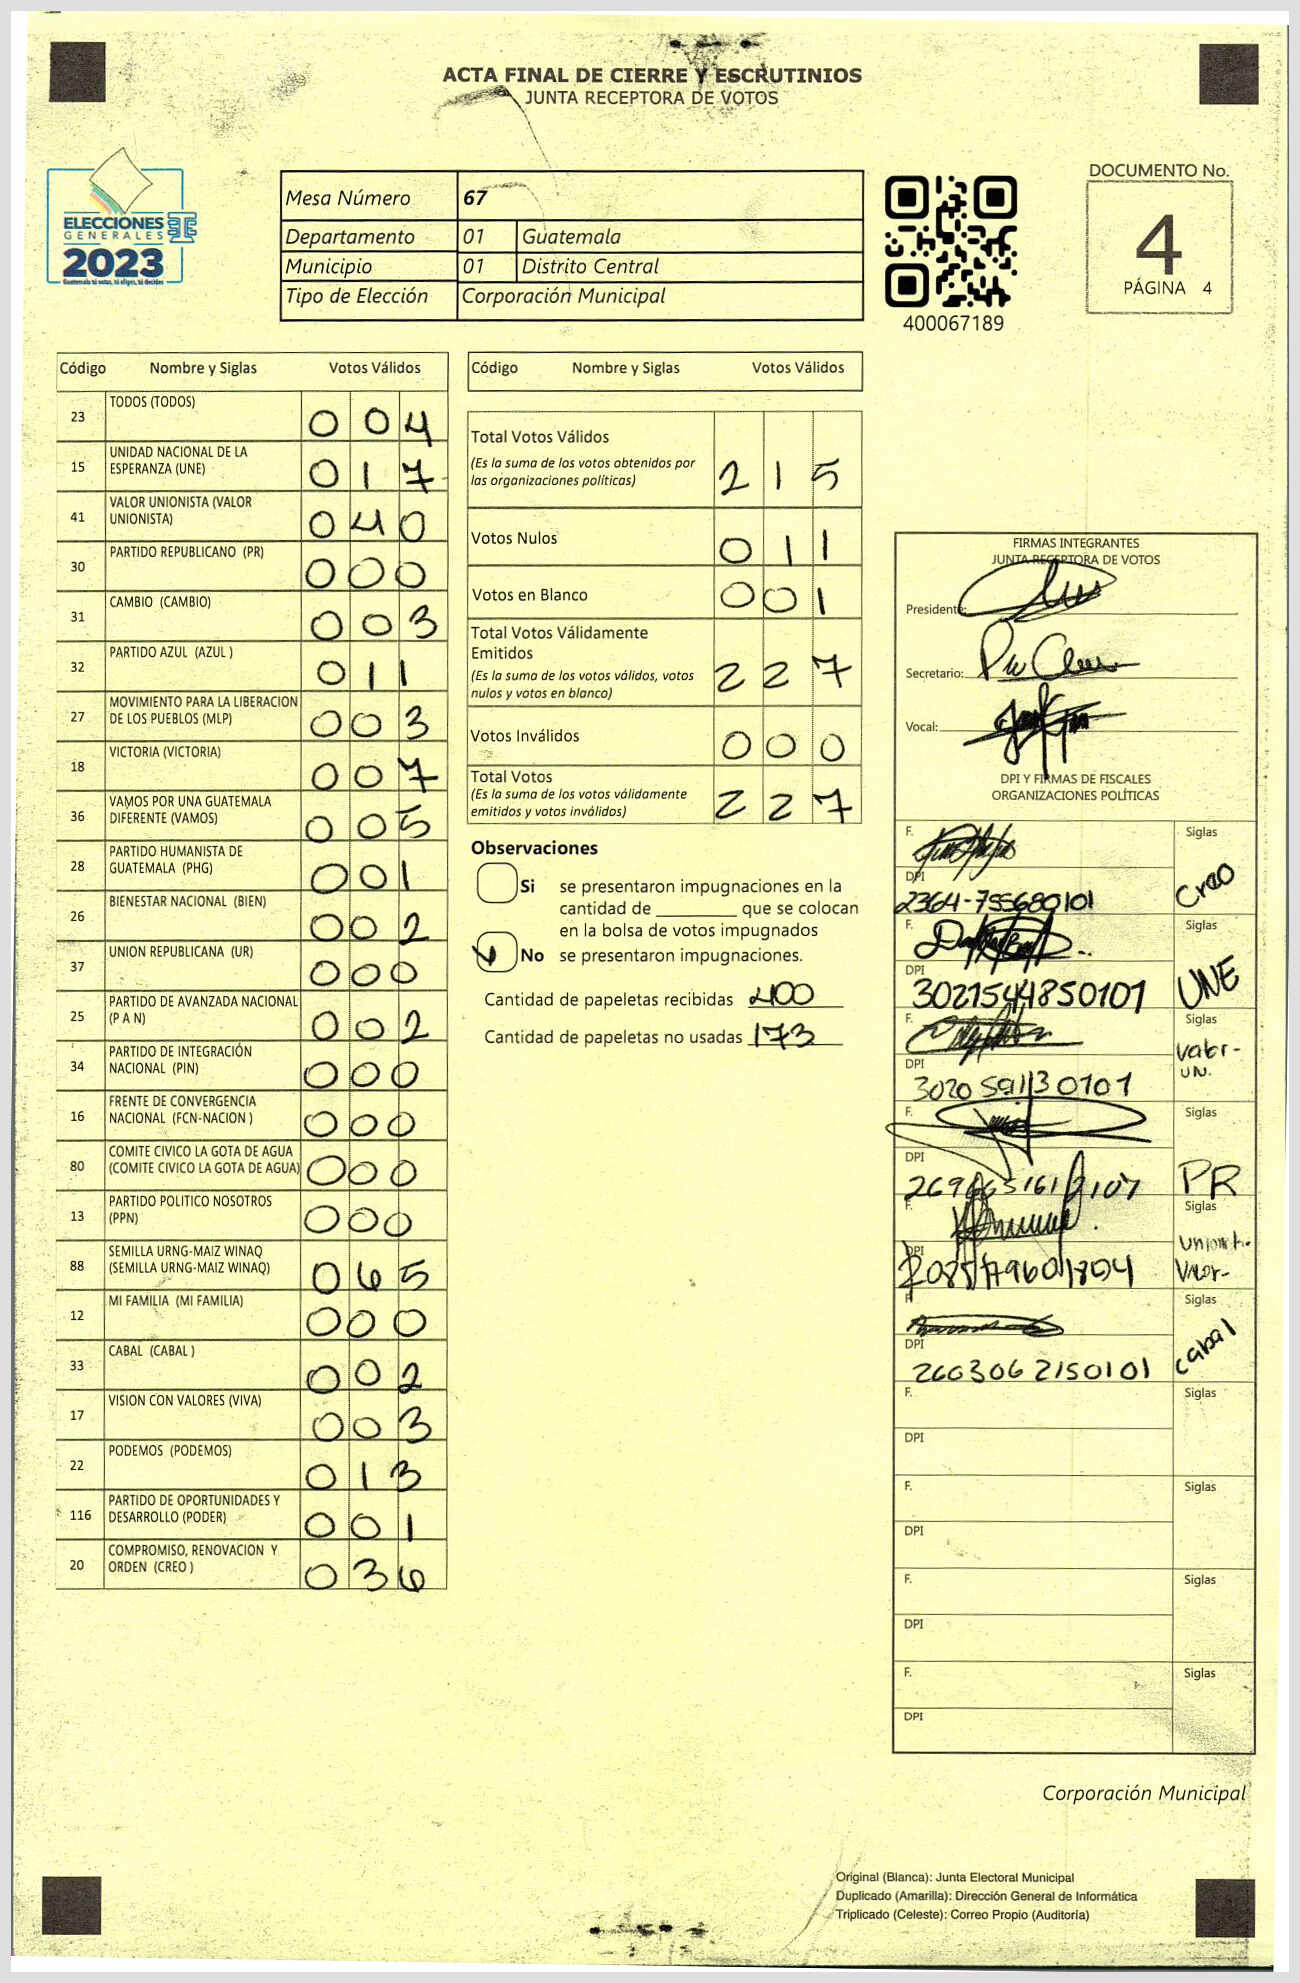 ACTA FINAL DE CIERRE Y ESCRUTINIOS
JUNTA RECEPTORA DE VOTOS
ELECCIONES
GENERALES
2023
Guatemala tú votas, tú eliges, tú decides
Mesa Número 67
Departamento 01 Guatemala
Municipio 01 Distrito Central
Tipo de Elección Corporación Municipal
400067189
DOCUMENTO No.
4
PÁGINA 4
Código Nombre y Siglas Votos Válidos
23 TODOS (TODOS) 0 0 4
15 UNIDAD NACIONAL DE LA
ESPERANZA (UNE) 0 1 7
41 VALOR UNIONISTA (VALOR
UNIONISTA) 0 4 0
30 PARTIDO REPUBLICANO (PR) 0 0 0
31 CAMBIO (CAMBIO) 0 0 3
32 PARTIDO AZUL (AZUL ) 0 1 1
27 MOVIMIENTO PARA LA LIBERACION
DE LOS PUEBLOS (MLP) 0 0 3
18 VICTORIA (VICTORIA) 0 0 7
36 VAMOS POR UNA GUATEMALA
DIFERENTE (VAMOS) 0 0 5
28 PARTIDO HUMANISTA DE
GUATEMALA (PHG) 0 0 1
26 BIENESTAR NACIONAL (BIEN) 0 0 2
37 UNION REPUBLICANA (UR) 0 0 0
25 PARTIDO DE AVANZADA NACIONAL
(P A N) 0 0 2
34 PARTIDO DE INTEGRACIÓN
NACIONAL (PIN) 0 0 0
16 FRENTE DE CONVERGENCIA
NACIONAL (FCN-NACION ) 0 0 0
80 COMITE CIVICO LA GOTA DE AGUA
(COMITE CIVICO LA GOTA DE AGUA) 0 0 0
13 PARTIDO POLITICO NOSOTROS
(PPN) 0 0 0
88 SEMILLA URNG-MAIZ WINAQ
(SEMILLA URNG-MAIZ WINAQ) 0 6 5
12 MI FAMILIA (MI FAMILIA) 0 0 0
33 CABAL (CABAL ) 0 0 2
17 VISION CON VALORES (VIVA) 0 0 3
22 PODEMOS (PODEMOS) 0 1 3
116 PARTIDO DE OPORTUNIDADES Y
DESARROLLO (PODER) 0 0 1
20 COMPROMISO, RENOVACION Y
ORDEN (CREO ) 0 3 6
Código Nombre y Siglas Votos Válidos
Total Votos Válidos
(Es la suma de los votos obtenidos por
las organizaciones políticas) 2 1 5
Votos Nulos 0 1 1
Votos en Blanco 0 0 1
Total Votos Válidamente
Emitidos
(Es la suma de los votos válidos, votos
nulos y votos en blanco) 2 2 7
Votos Inválidos 0 0 0
Total Votos
(Es la suma de los votos válidamente
emitidos y votos inválidos) 2 2 7
Observaciones
Si se presentaron impugnaciones en la
cantidad de ________ que se colocan
en la bolsa de votos impugnados
No se presentaron impugnaciones.
Cantidad de papeletas recibidas 400
Cantidad de papeletas no usadas 173
FIRMAS INTEGRANTES
JUNTA RECEPTORA DE VOTOS
Presidente:
Secretario:
Vocal:
DPI Y FIRMAS DE FISCALES
ORGANIZACIONES POLÍTICAS
F. Siglas
DPI Creo
2364-755680101
F. Siglas
DPI UNE
3021544850101
F. Siglas
DPI Valor-
UN.
F. Siglas
DPI PR
F. Siglas
DPI
Valor-
F. Siglas
DPI cabal
260306 2150101
F. Siglas
DPI
F. Siglas
DPI
F. Siglas
DPI
F. Siglas
DPI
Corporación Municipal
Original (Blanca): Junta Electoral Municipal
Duplicado (Amarilla): Dirección General de Informática
Triplicado (Celeste): Correo Propio (Auditoría)